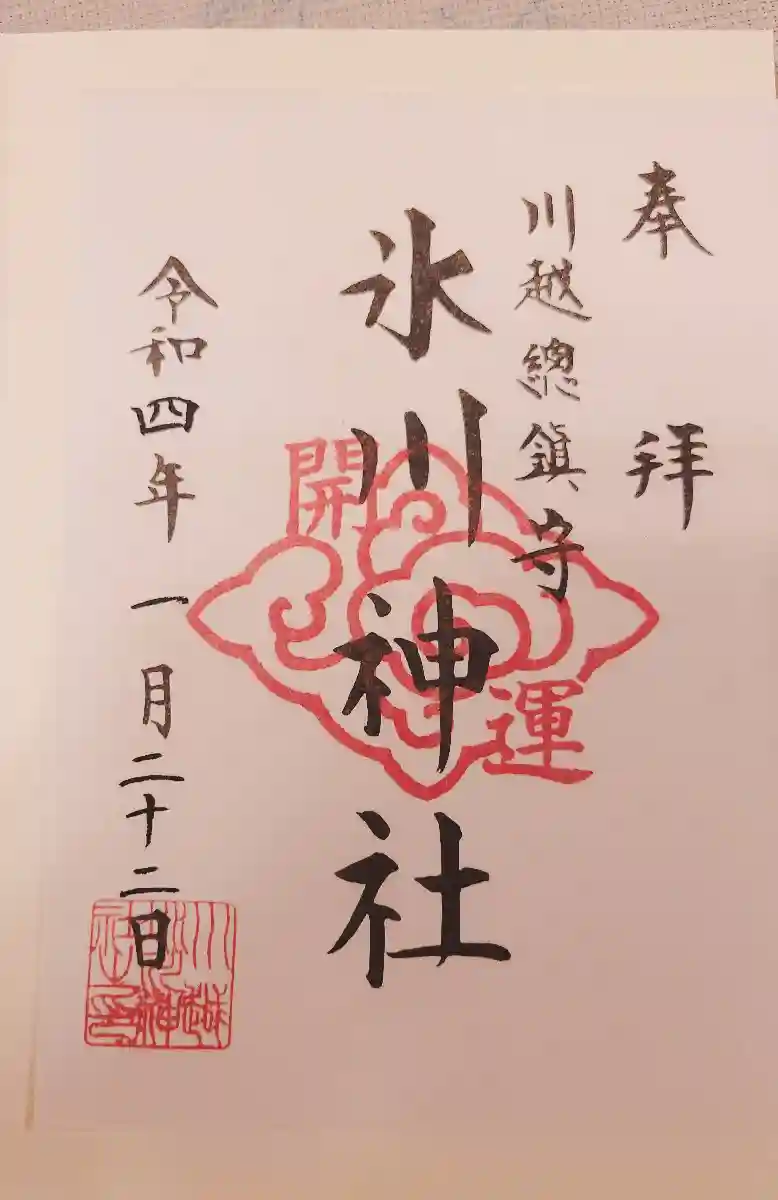 奉拝
川越總鎮守
氷川神社
開運
令和四年一月二十二日